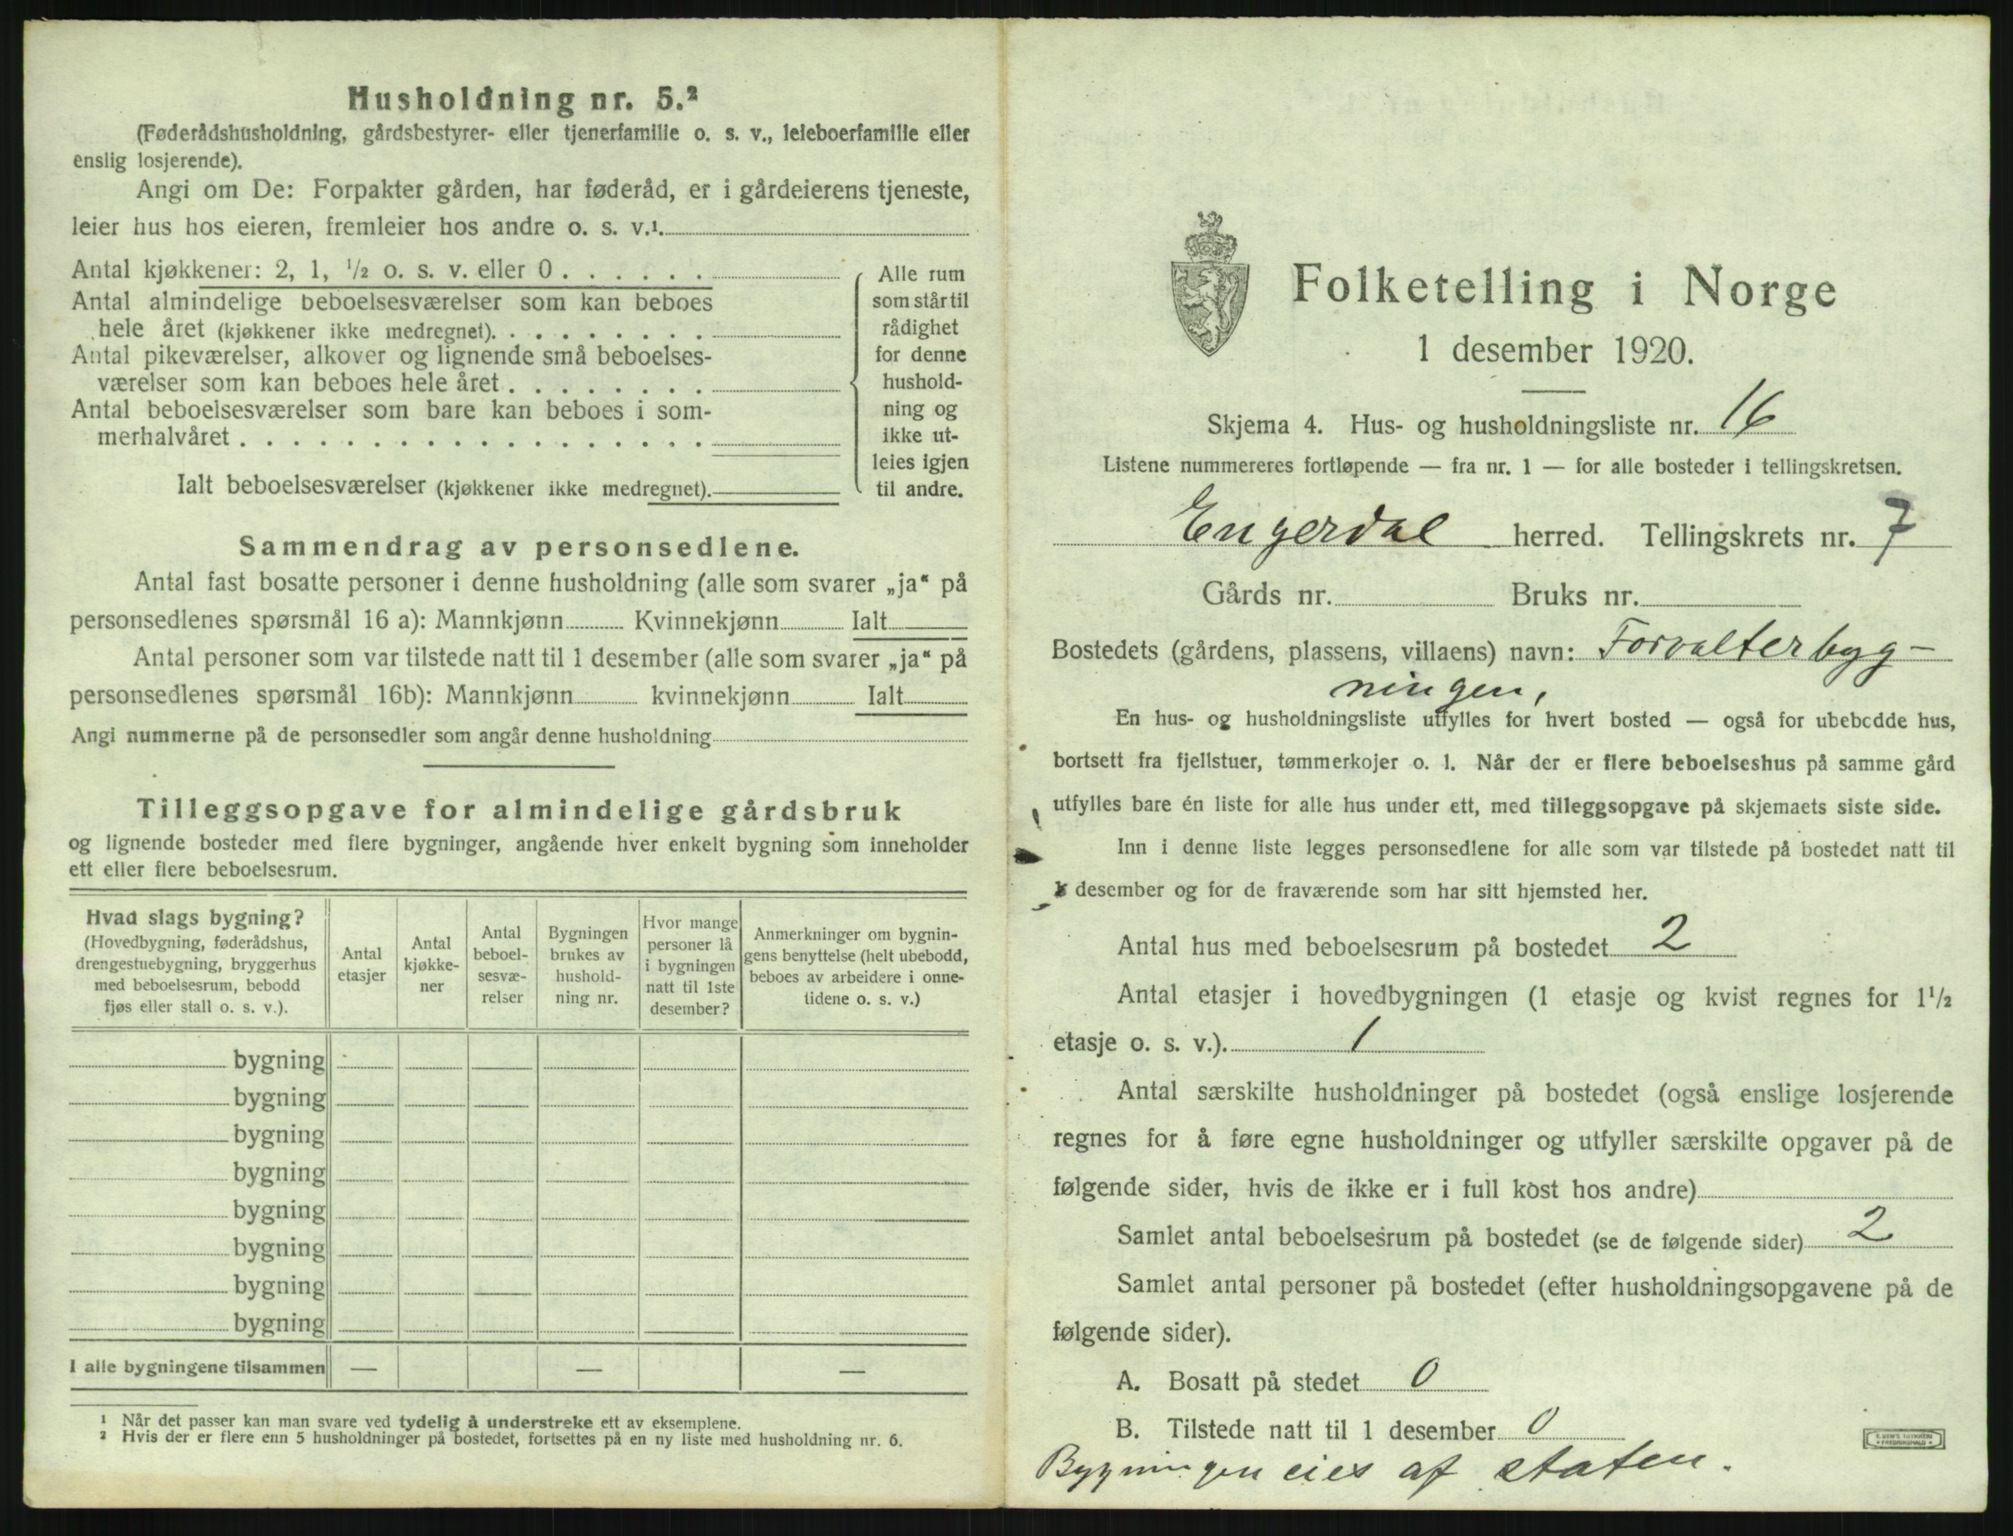 Husholdning nr. 5.²
(Føderådshusholdning, gårdsbestyrer- eller tjenerfamilie o. s. v., leieboerfamilie eller
enslig losjerende).
Angi om De: Forpakter gården, har føderåd, er i gårdeierens tjeneste,
leier hus hos eieren, fremleier hos andre o. s. v.¹
Antal kjøkkener: 2, 1, ½ o. s. v. eller 0 . . . . . .
Antal almindelige beboelsesværelser som kan beboes
hele året (kjøkkener ikke medregnet). . . . . . . . .
Antal pikeværelser, alkover og lignende små beboelses-
værelser som kan beboes hele året . . . . . . . .
Antal beboelsesværelser som bare kan beboes i som-
merhalvåret . . . . . . . . . . . . . . . . . .
Ialt beboelsesværelser (kjøkkener ikke medregnet).
Alle rum
som står til
rådighet
for denne
hushold-
ning og
ikke ut-
leies igjen
til andre.
Sammendrag av personsedlene.
Antal fast bosatte personer i denne husholdning (alle som svarer „ja“ på
personsedlenes spørsmål 16 a): Mannkjønn Kvinnekjønn Ialt
Antal personer som var tilstede natt til 1 desember (alle som svarer „ja“ på
personsedlenes spørsmål 16b): Mannkjønn kvinnekjønn Ialt
Angi nummerne på de personsedler som angår denne husholdning
Tilleggsopgave for almindelige gårdsbruk
og lignende bosteder med flere bygninger, angående hver enkelt bygning som inneholder
ett eller flere beboelsesrum.
Hvad slags bygning?
(Hovedbygning, føderådshus,
drengestuebygning, bryggerhus
med beboelsesrum, bebodd
fjøs eller stall o. s. v.).
Antal
etasjer
Antal
kjøkke-
ner
Antal
beboel-
sesvæ-
relser
Bygningen
brukes av
hushold-
ning nr.
Hvor mange
personer lå
i bygningen
natt til 1ste
desember?
Anmerkninger om bygnin-
gens benyttelse (helt ubebodd,
beboes av arbeidere i onne-
tidene o. s. v.)
bygning
bygning
bygning
bygning
bygning
bygning
bygning
bygning
I alle bygningene tilsammen — — —
¹ Når det passer kan man svare ved tydelig å understreke ett av eksemplene.
² Hvis der er flere enn 5 husholdninger på bostedet, fortsettes på en ny liste med husholdning nr. 6.
Folketelling i Norge
1 desember 1920.
Skjema 4. Hus- og husholdningsliste nr. 16
Listene nummereres fortløpende — fra nr. 1 — for alle bosteder i tellingskretsen.
Engerdal herred. Tellingskrets nr. 7
Gårds nr. Bruks nr.
Bostedets (gårdens, plassens, villaens) navn: Forvalterbyg-
ningen,
En hus- og husholdningsliste utfylles for hvert bosted — også for ubebodde hus,
bortsett fra fjellstuer, tømmerkojer o. l. Når der er flere beboelseshus på samme gård
utfylles bare én liste for alle hus under ett, med tilleggsopgave på skjemaets siste side.
Inn i denne liste legges personsedlene for alle som var tilstede på bostedet natt til
1 desember og for de fraværende som har sitt hjemsted her.
Antal hus med beboelsesrum på bostedet 2
Antal etasjer i hovedbygningen (1 etasje og kvist regnes for 1½
etasje o. s. v.). 1
Antal særskilte husholdninger på bostedet (også enslige losjerende
regnes for å føre egne husholdninger og utfyller særskilte opgaver på de
følgende sider, hvis de ikke er i full kost hos andre)
Samlet antal beboelsesrum på bostedet (se de følgende sider) 2
Samlet antal personer på bostedet (efter husholdningsopgavene på de
følgende sider).
A. Bosatt på stedet 0
B. Tilstede natt til 1 desember 0
Bygningen eies af staten.